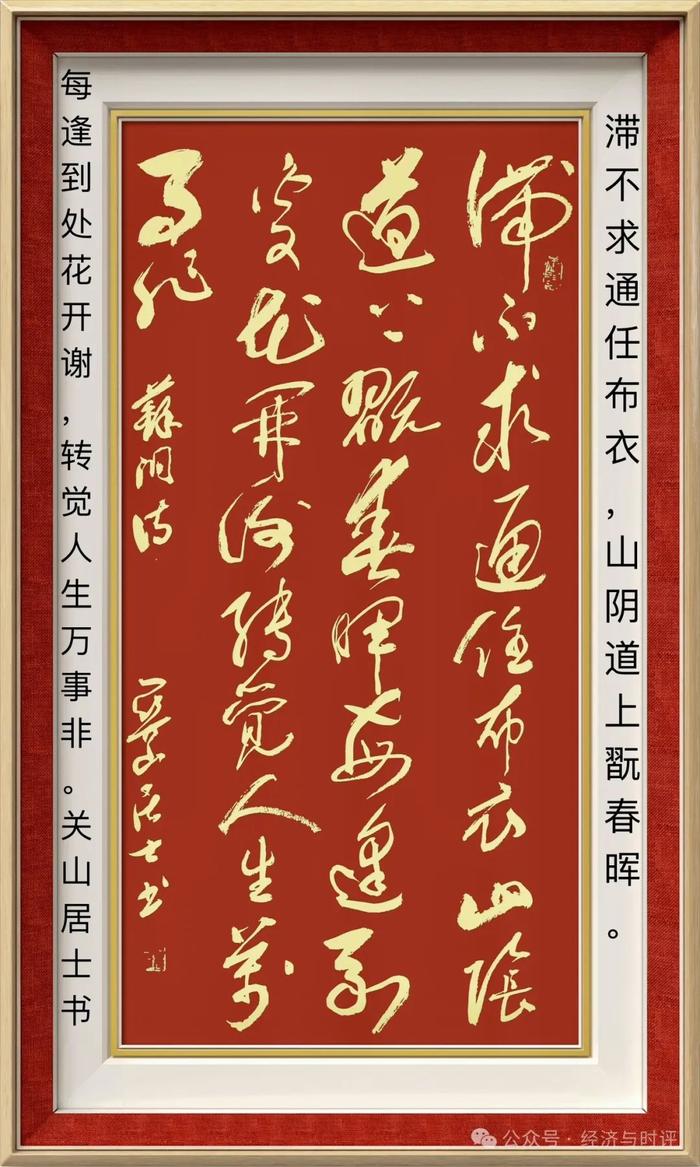 滞不求通任布衣，山阴道上翫春晖。
滞不求通任布衣山陰
道上翫春暉每逢到
處花開謝轉覺人生萬
事非 蘇泂诗 關山居士书
每逢到处花开谢，转觉人生万事非。关山居士书
公众号·经济与时评